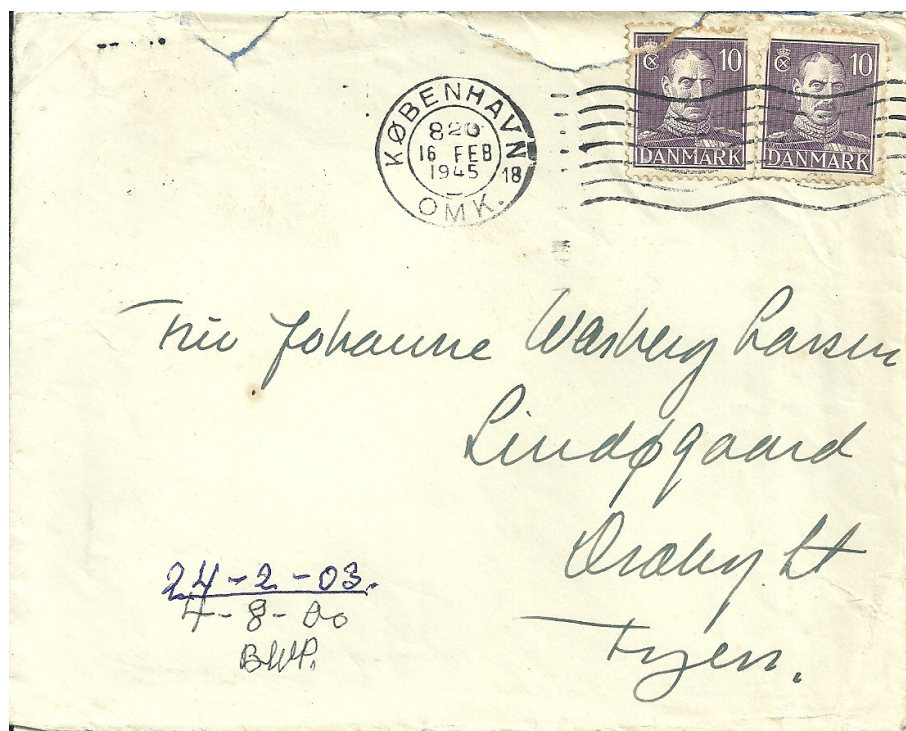 KØBENHAVN
820
16 FEB
1945
18
OMK.
10 10
DANMARK DANMARK
Fru Johanne Warberg Larsen
Lindøgaard
Dræby St
Fyen.
24-2-03.
4-8-00
BWP.